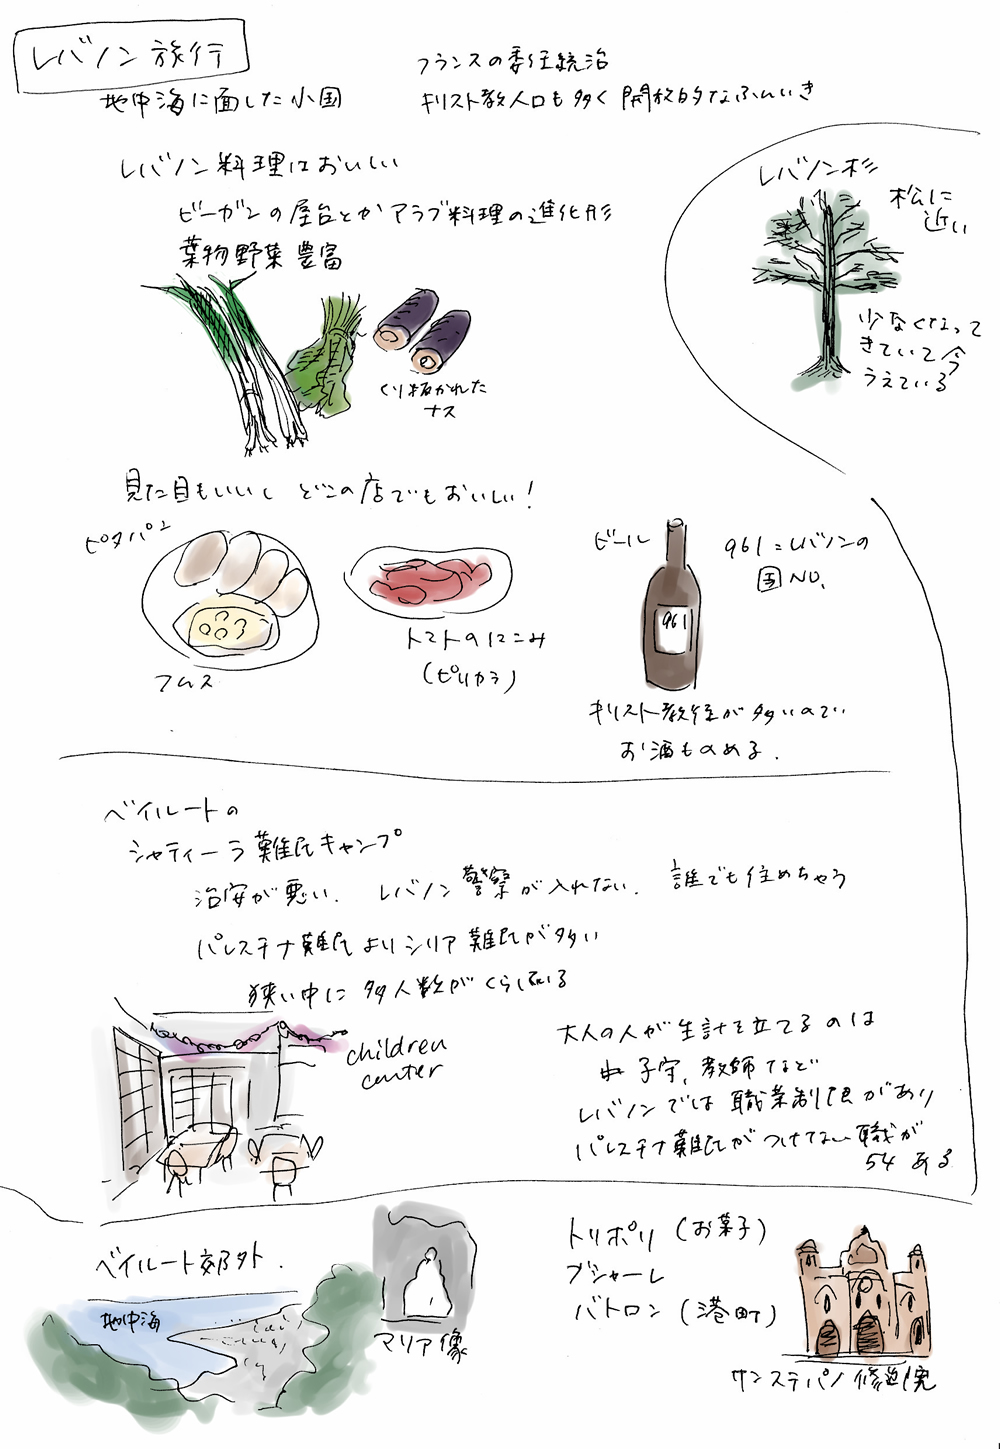 レバノン旅行
地中海に面した小国
フランスの委任統治
キリスト教人口も多く開放的なふんいき
レバノン料理はおいしい
ビーガンの屋台とかアラブ料理の進化形
葉物野菜豊富
くり抜かれた
ナス
レバノン杉
松に
近い
少なくなって
きていて今
うえている
見た目もいいし どこの店でもおいしい!
ピタパン
フムス
トマトのにこみ
(ピリカラ)
ビール
961
961=レバノンの
国NO.
キリスト教徒が多いので
お酒ものめる.
ベイルートの
シャティーラ難民キャンプ
治安が悪い. レバノン警察が入れない. 誰でも住めちゃう
パレスチナ難民よりシリア難民が多い
狭い中に多人数がくらしている
children
center
大人の人が生計を立てるのは
子守、教師など
レバノンでは職業制限があり
パレスチナ難民がつけない職が
54ある
ベイルート郊外.
地中海
マリア像
トリポリ(お菓子)
ブシャーレ
バトロン(港町)
サンステパノ修道院